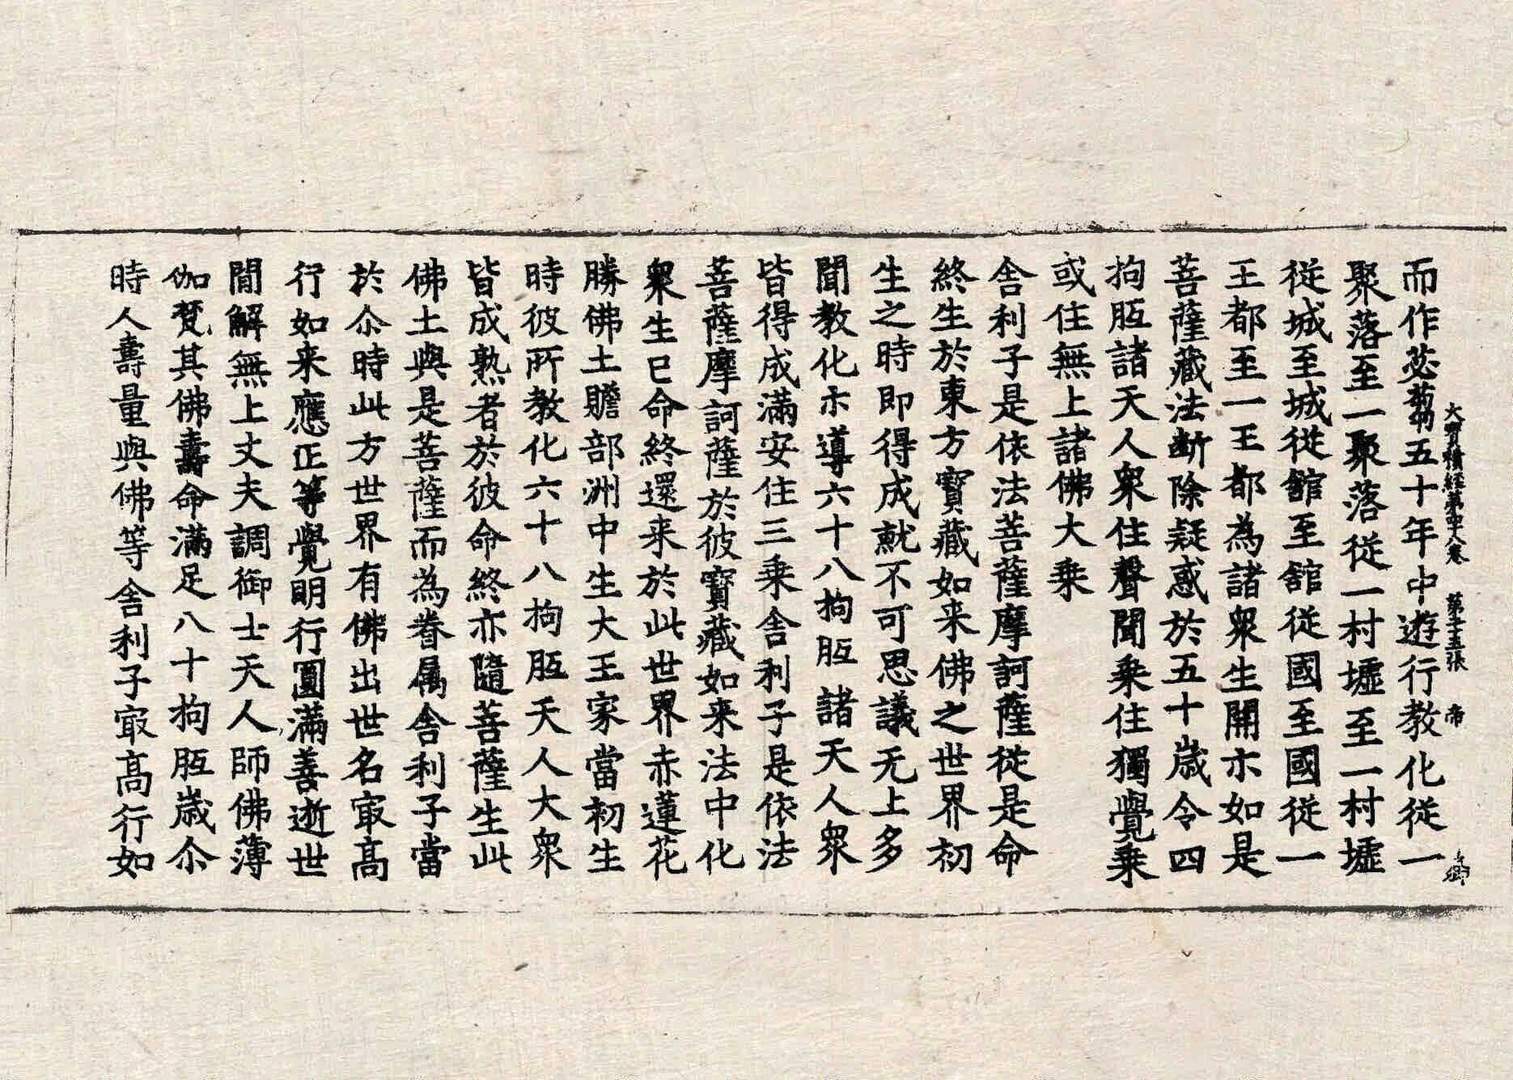 大寶積經第四十八卷　第二十五張　帝
而作苾蒭五十年中遊行教化從一
聚落至一聚落從一村墟至一村墟
從城至城從舘至舘從國至國從一
王都至一王都為諸衆生開示如是
菩薩藏法斷除疑惑於五十歲令四
拘胝諸天人衆住聲聞乗住獨覺乗
或住無上諸佛大乗
舎利子是依法菩薩摩訶薩從是命
終生於東方寳藏如来佛之世界初
生之時即得成就不可思議无上多
聞教化示導六十八拘胝諸天人衆
皆得成滿安住三乗舎利子是依法
菩薩摩訶薩於彼寳藏如来法中化
衆生已命終還来於此世界赤蓮花
勝佛土贍部洲中生大王家當初生
時彼所教化六十八拘胝天人大衆
皆成熟者於彼命終亦隨菩薩生此
佛土與是菩薩而為眷属舎利子當
於尒時此方世界有佛出世名㝡髙
行如来應正等覺明行圓滿善逝世
間解無上丈夫調御士天人師佛薄
伽梵其佛壽命滿足八十拘胝歳尒
時人壽量與佛等舎利子㝡髙行如